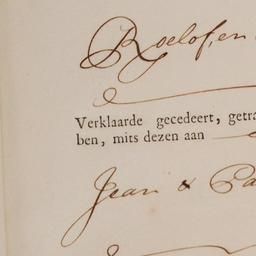 Roelof, en
Verklaarde gecedeert, getra
ben, mits dezen aan
Jean & Pa